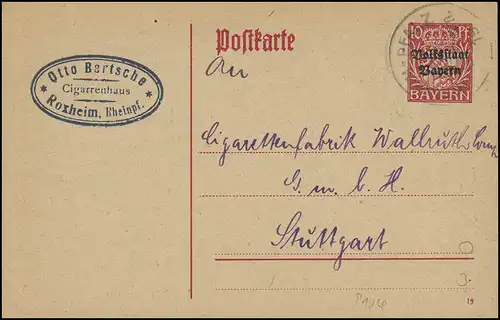 Postkarte
An
10 Pf
Volksstaat
Bayern
BAYERN
Otto Bertsche
Cigarrenhaus
* Roxheim, Rheinpf. *
Cigarettenfabrik Wallruth &
G. m. b. H.
Stuttgart
19